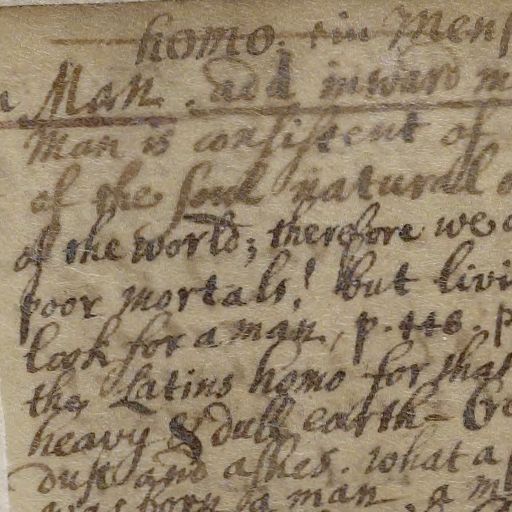 homo. + in Mens
Man. add inward m
Man is consistent of
of the soul natural
of the world; therefore we
poor mortals! but livi
look for a man, p. 448. p
the Latins homo for that
heavy & dull earth - Gr
dust and ashes. what a
was born a man, a m